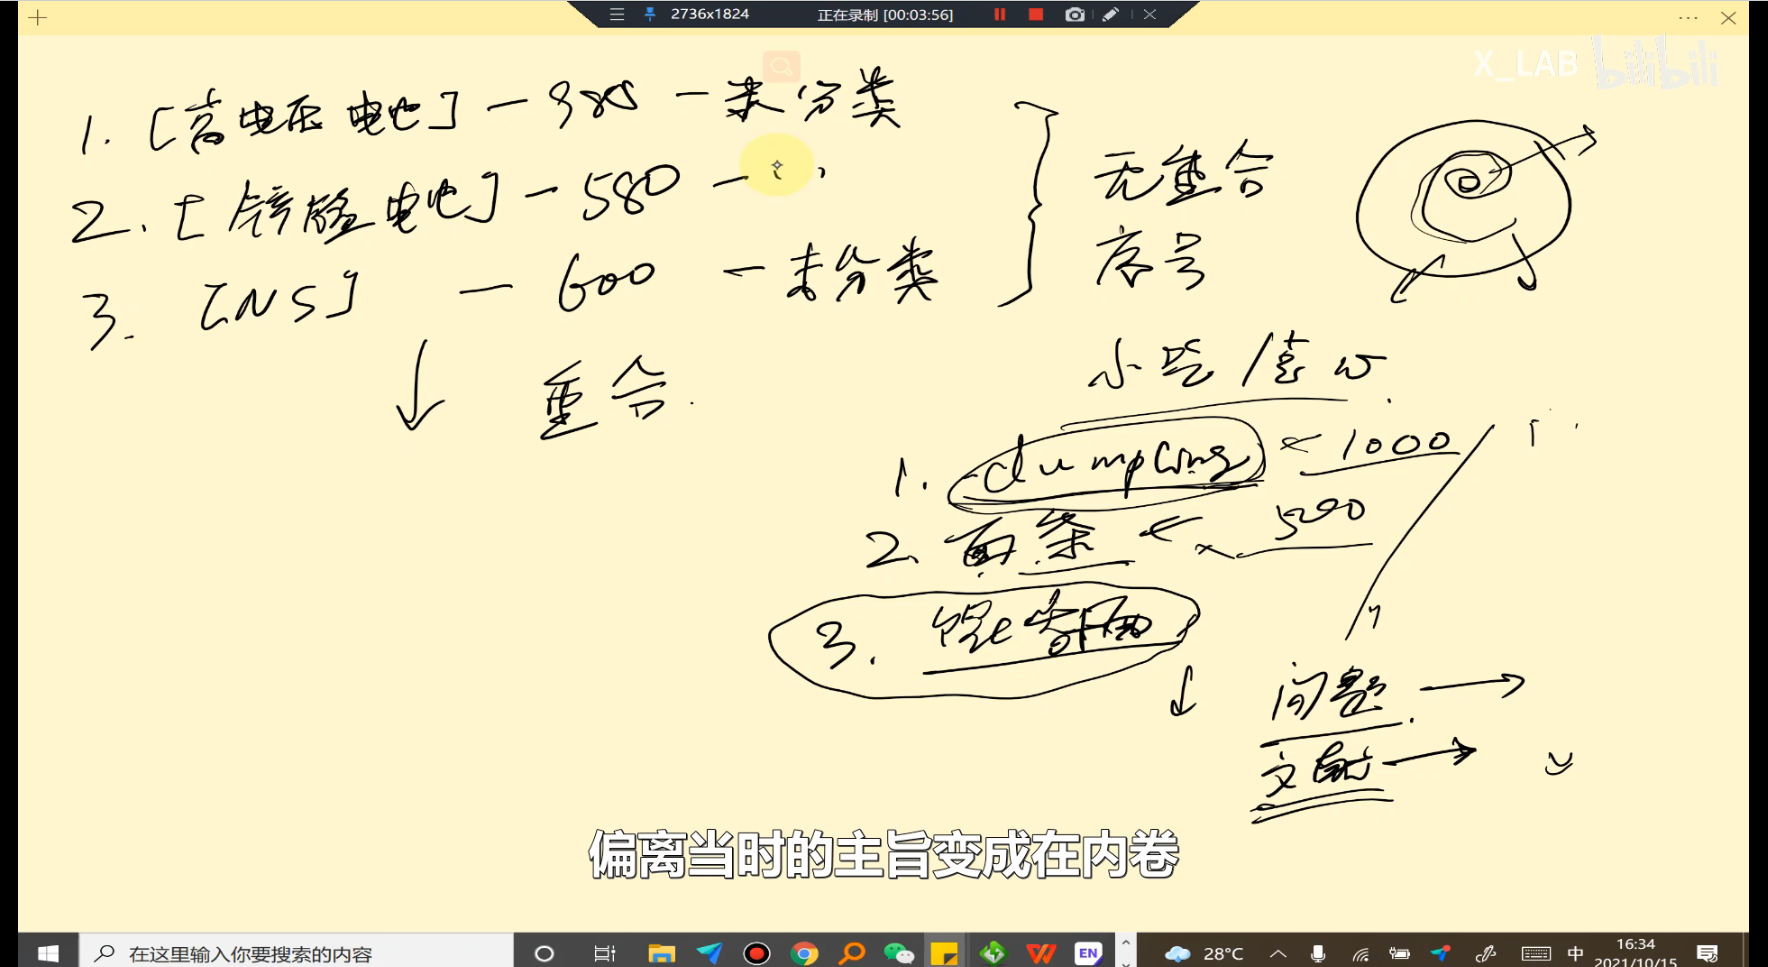 2736x1824 正在录制 [00:03:56]
X_LAB bilibili
1. [高电压电池] — 380 — 未分类
2. [锌锰电池] — 580 —
3. [NS] — 600 — 未分类
无重合
序号
重合.
小吃/
1. dumpling 1000
2. 面条 500
3. 馄饨
问题
文献
偏离当时的主旨变成在内卷
在这里输入你要搜索的内容
EN
28°C
中
16:34
2021/10/15